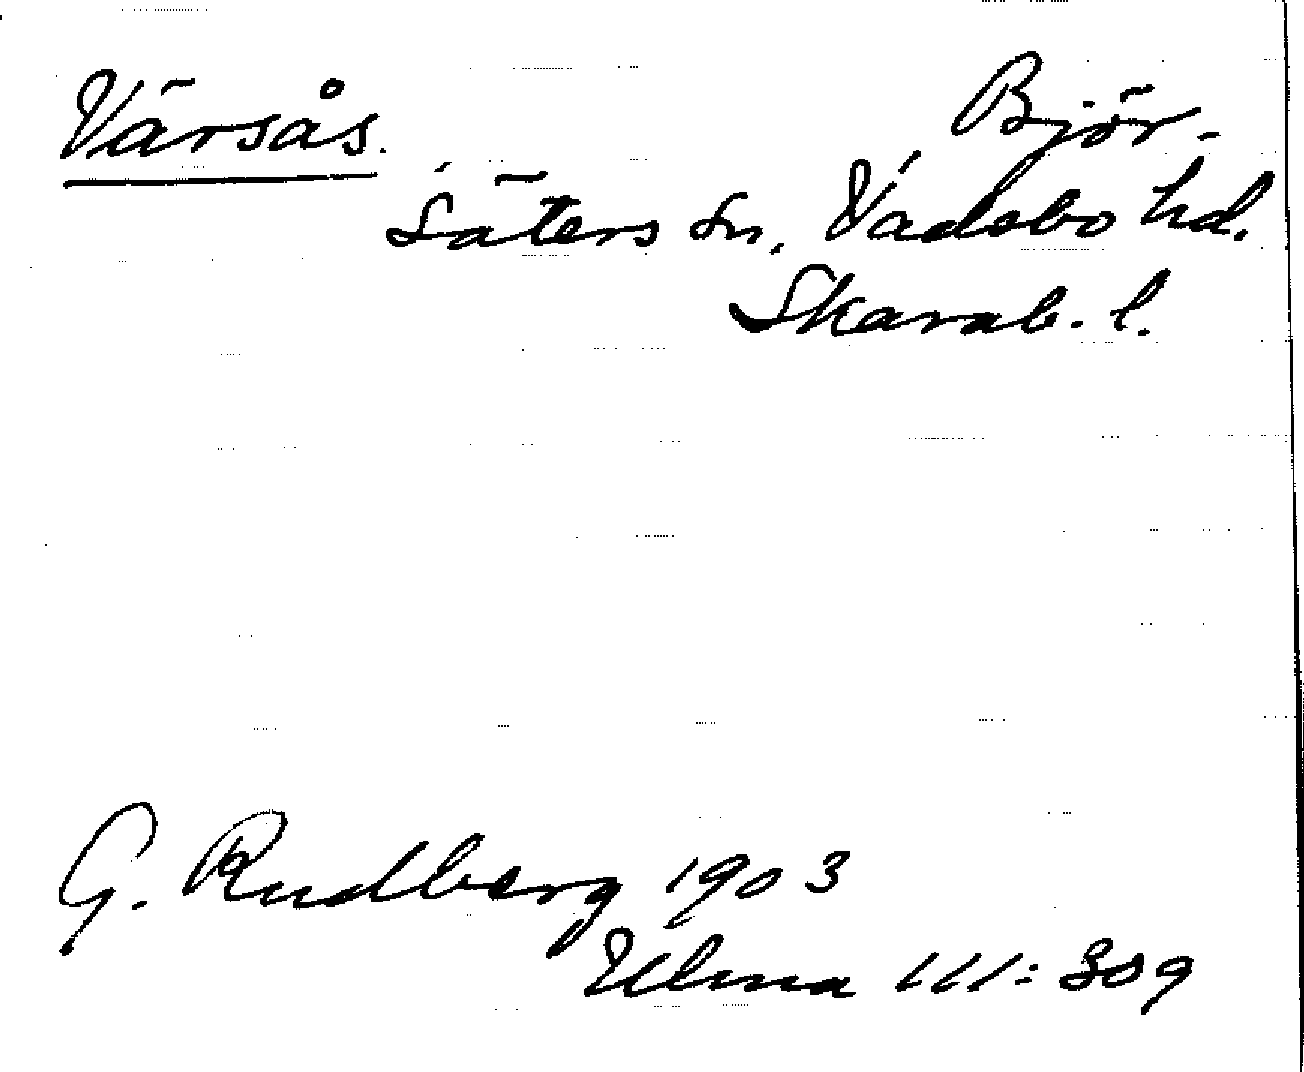 Värsås. Björ-
säters sn, Vadsbo hd.
Skarab. l.
G. Rudberg 1903
Ulma 111:309